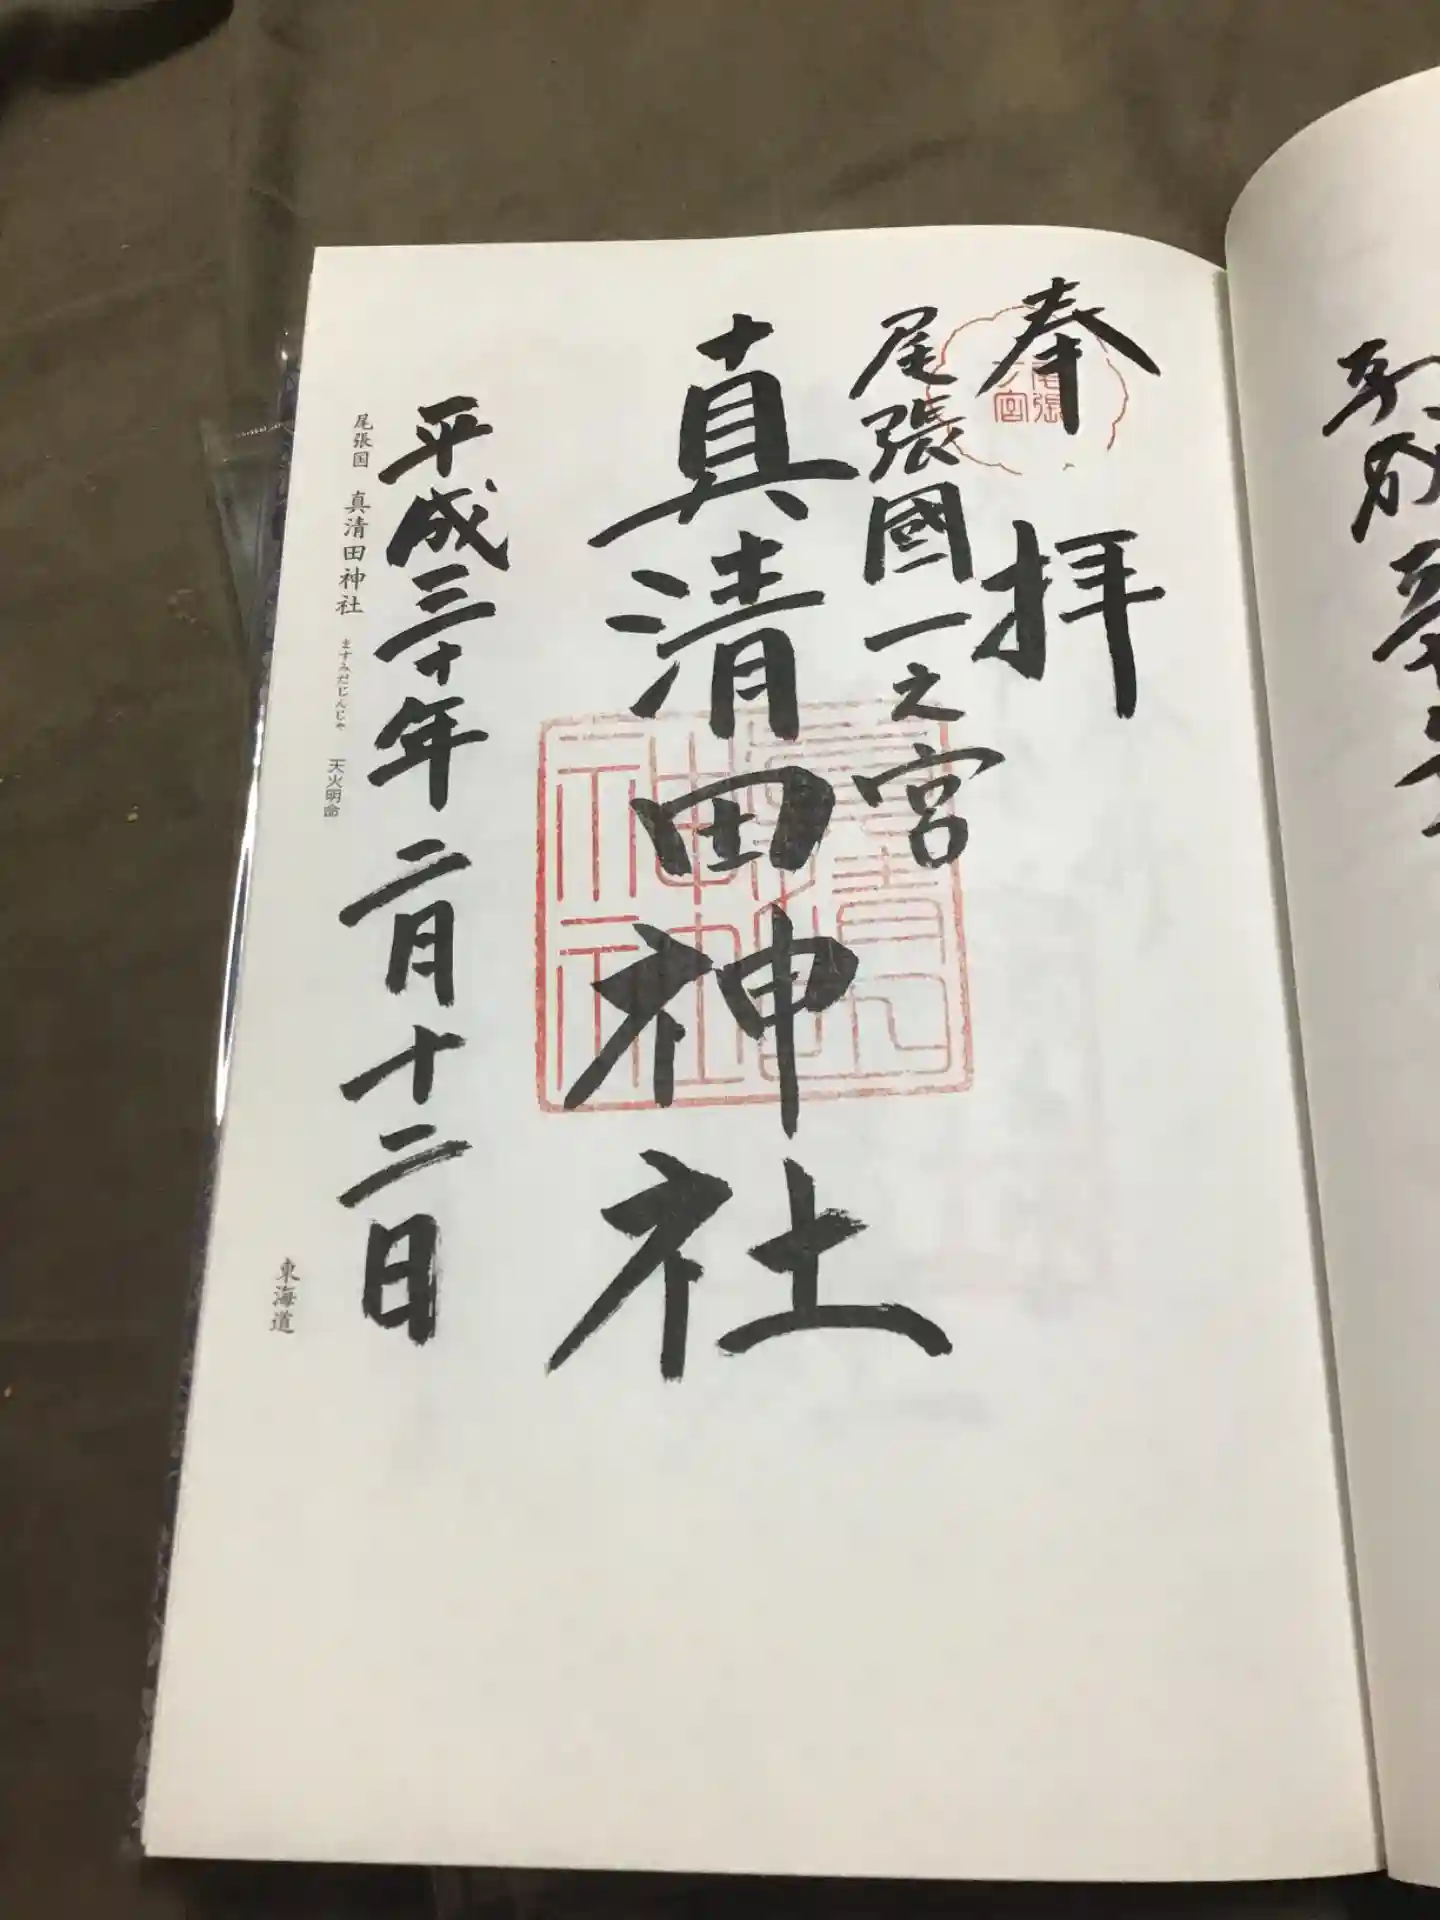 奉拝
尾張國一之宮
真清田神社
平成三十年二月十二日
尾張国 真清田神社 ますみだじんじゃ 天火明命
東海道
尾張
一宮